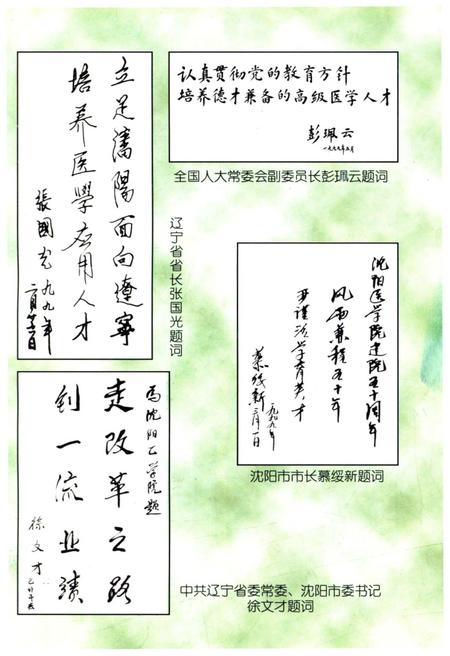 立足瀋陽面向遼寧
培养医學应用人才
張國光
一九九九年
二月廿二日
辽宁省省长张国光题词
认真贯彻党的教育方针
培养德才兼备的高级医学人才
彭珮云
一九九九年三月
全国人大常委会副委员长彭珮云题词
沈阳医学院建院五十周年
风雨兼程五十年
严谨治学育英才
慕绥新
一九九九年
三月一日
沈阳市市长慕绥新题词
为沈阳医学院题
走改革之路
创一流业绩
徐文才
中共辽宁省委常委、沈阳市委书记
徐文才题词